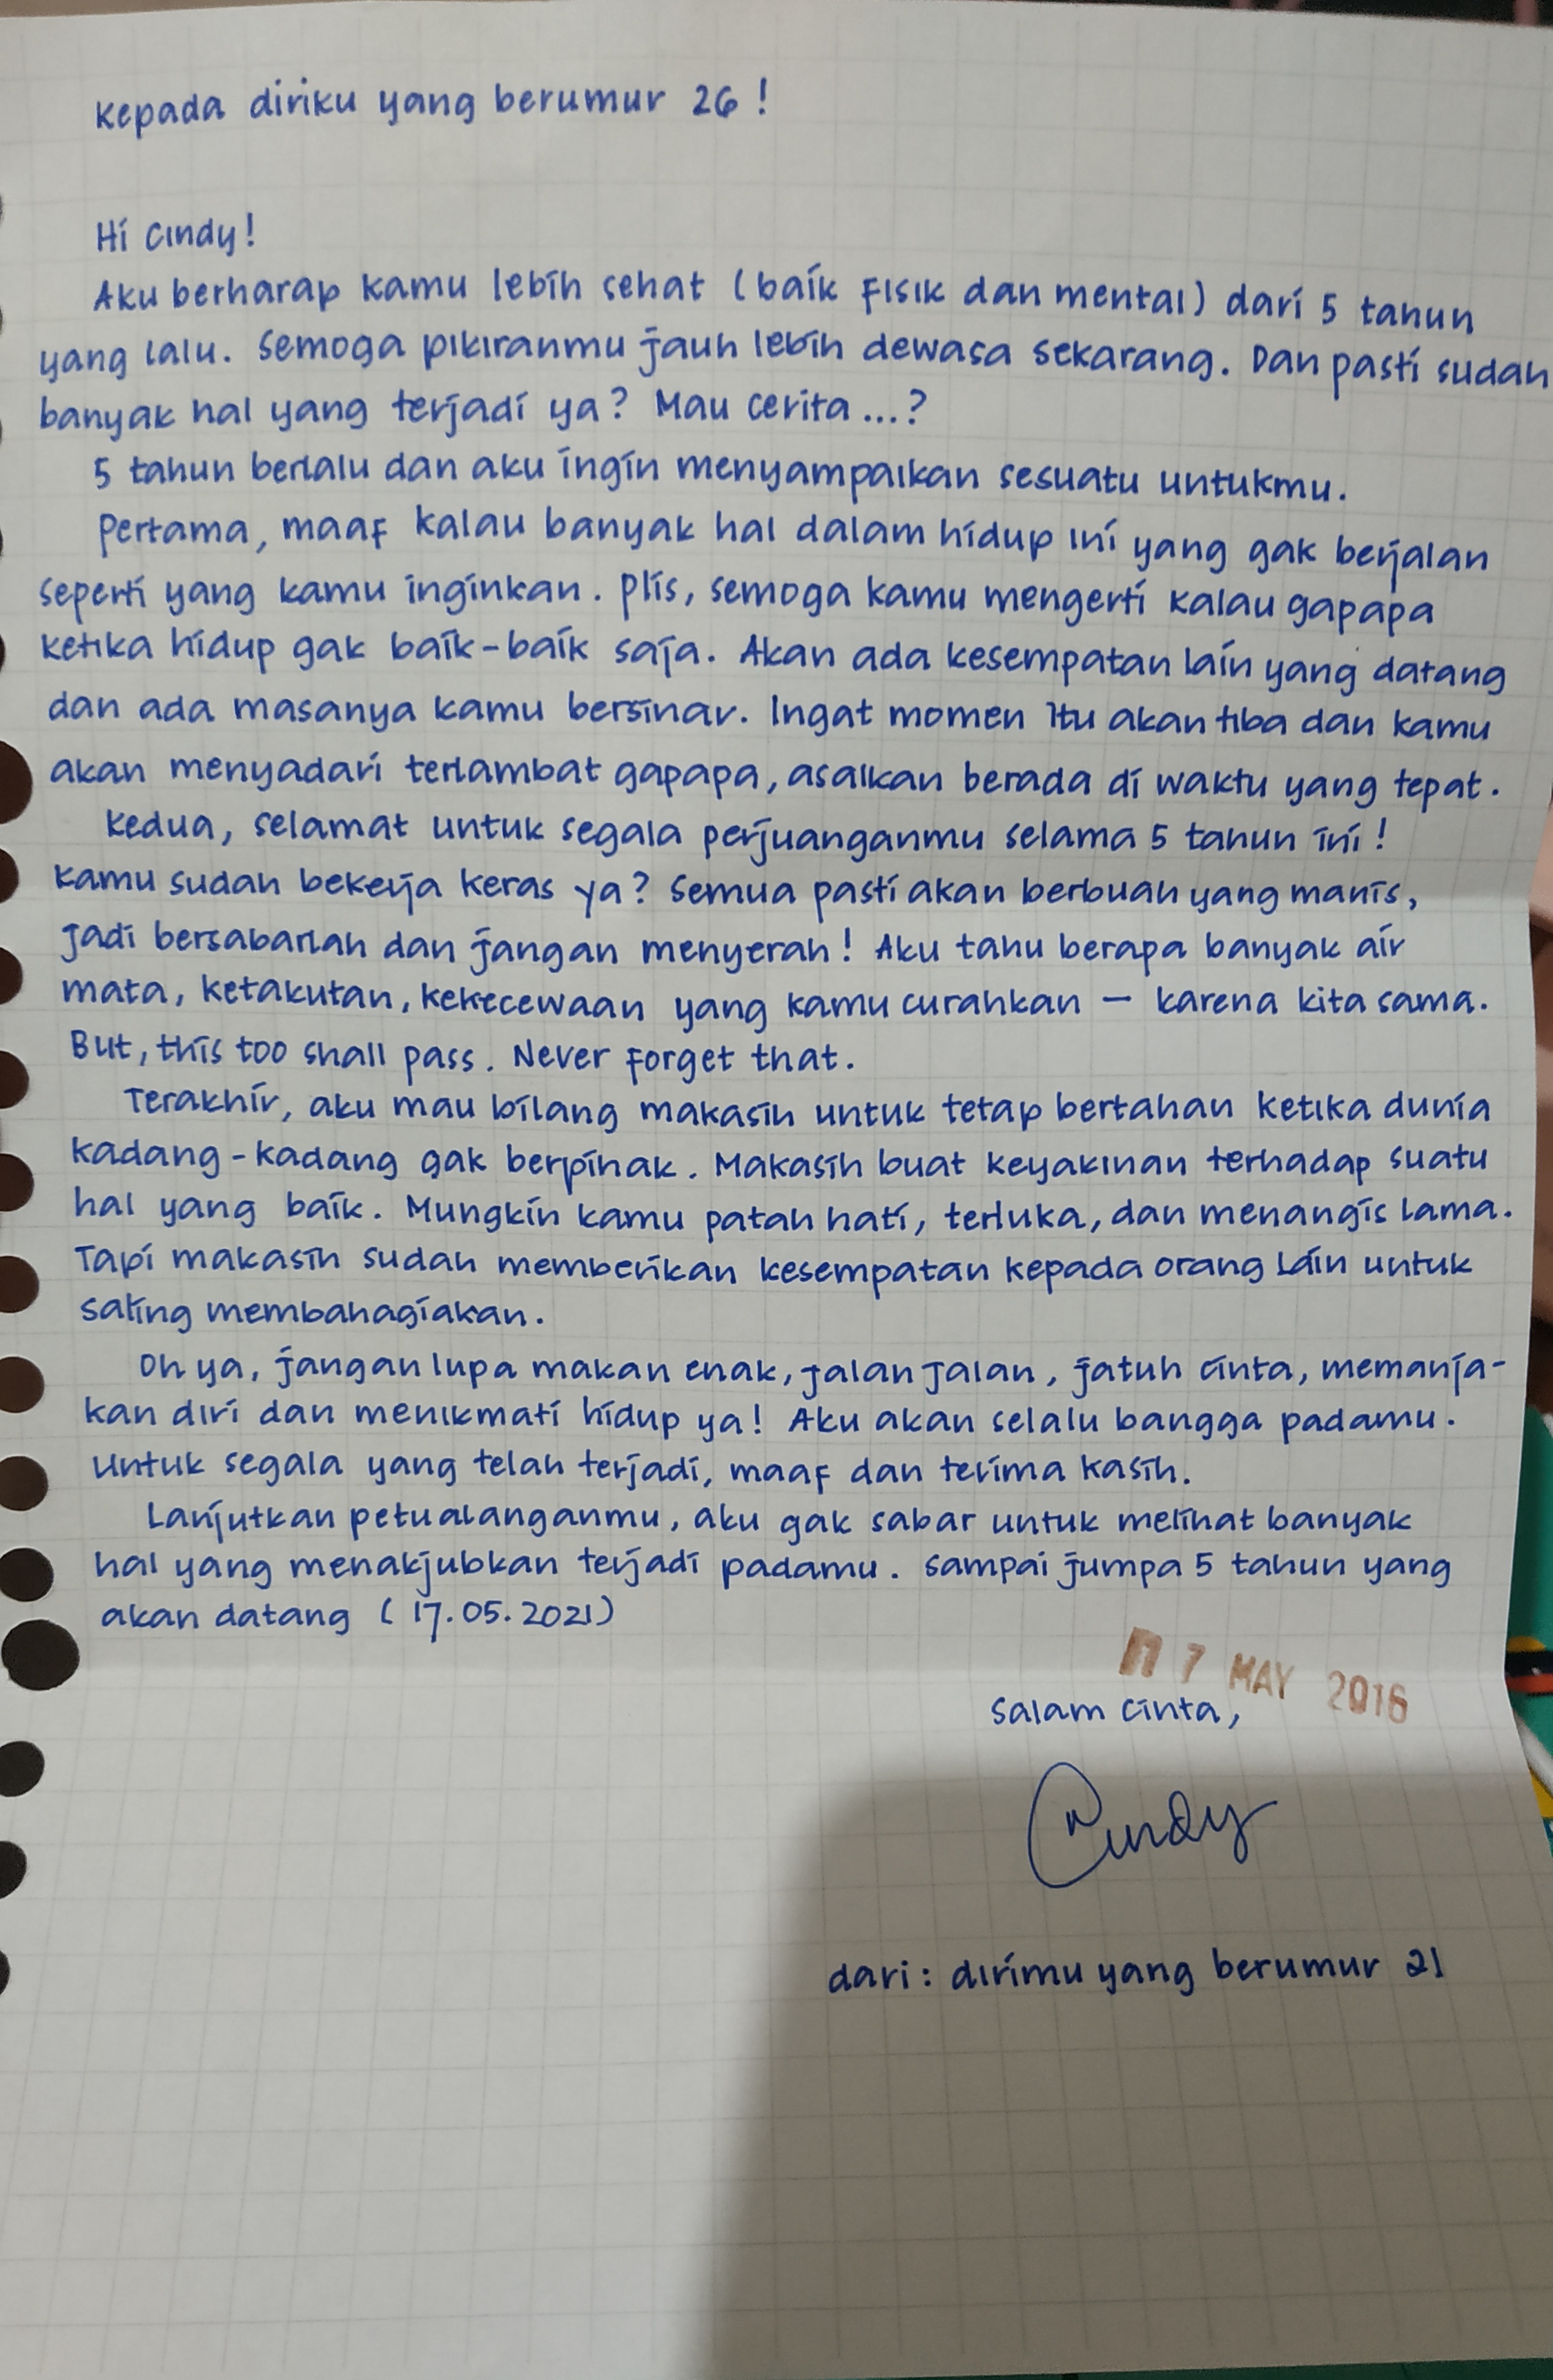 Kepada diriku yang berumur 26!
Hi Cindy!
Aku berharap kamu lebih sehat (baik fisik dan mental) dari 5 tahun
yang lalu. Semoga pikiranmu jauh lebih dewasa sekarang. Dan pasti sudah
banyak hal yang terjadi ya? Mau cerita...?
5 tahun berlalu dan aku ingin menyampaikan sesuatu untukmu.
Pertama, maaf kalau banyak hal dalam hidup ini yang gak berjalan
seperti yang kamu inginkan. Plis, semoga kamu mengerti kalau gapapa
ketika hidup gak baik-baik saja. Akan ada kesempatan lain yang datang
dan ada masanya kamu bersinar. Ingat momen itu akan tiba dan kamu
akan menyadari terlambat gapapa, asalkan berada di waktu yang tepat.
Kedua, selamat untuk segala perjuanganmu selama 5 tahun ini!
Kamu sudah bekerja keras ya? Semua pasti akan berbuah yang manis,
jadi bersabarlah dan jangan menyerah! Aku tahu berapa banyak air
mata, ketakutan, kekecewaan yang kamu curahkan — karena kita sama.
But, this too shall pass. Never forget that.
Terakhir, aku mau bilang makasih untuk tetap bertahan ketika dunia
kadang-kadang gak berpihak. Makasih buat keyakinan terhadap suatu
hal yang baik. Mungkin kamu patah hati, terluka, dan menangis lama.
Tapi makasih sudah memberikan kesempatan kepada orang lain untuk
saling membahagiakan.
Oh ya, jangan lupa makan enak, jalan jalan, jatuh cinta, memanja-
kan diri dan menikmati hidup ya! Aku akan selalu bangga padamu.
Untuk segala yang telah terjadi, maaf dan terima kasih.
Lanjutkan petualanganmu, aku gak sabar untuk melihat banyak
hal yang menakjubkan terjadi padamu. Sampai jumpa 5 tahun yang
akan datang (17.05.2021)
7 MAY 2016
Salam cinta,
Cindy
dari: dirimu yang berumur 21